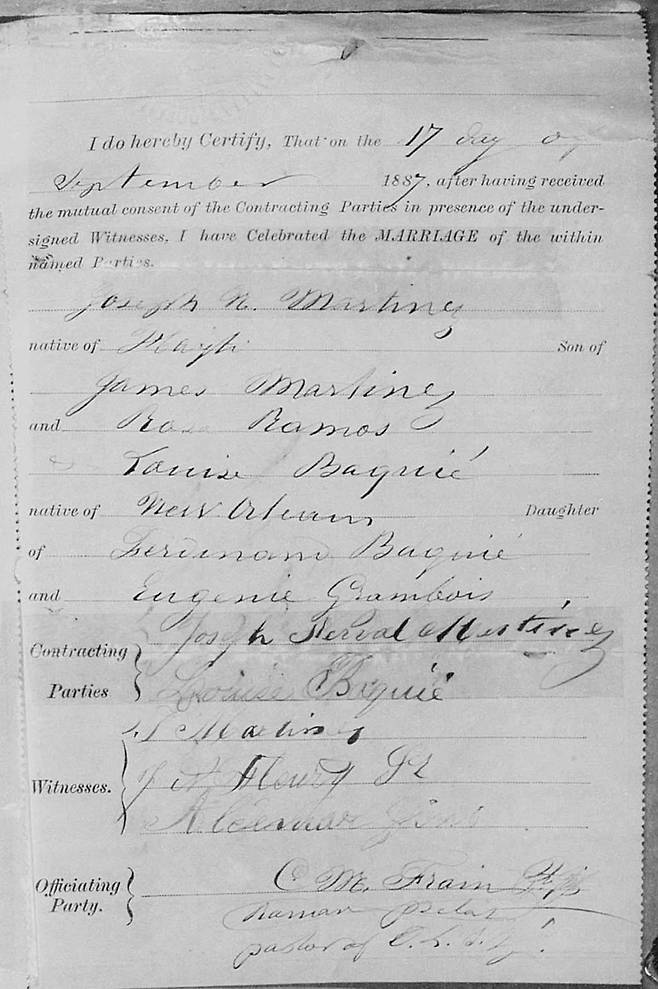 I do hereby Certify, That on the 17 day of
September 1887, after having received
the mutual consent of the Contracting Parties in presence of the under-
signed Witnesses, I have Celebrated the MARRIAGE of the within
named Parties.
Joseph N. Martinez
native of Hayti Son of
James Martinez
and Rosa Ramos
Louise Baquié
native of New Orleans Daughter
of Ferdinand Baquié
and Eugenie Grambois
Contracting Parties
Joseph Nerval Martinez
Louise Baquié
Witnesses.
Martinez
Fleury Jr
Officiating Party.
C M. Frain
pastor of